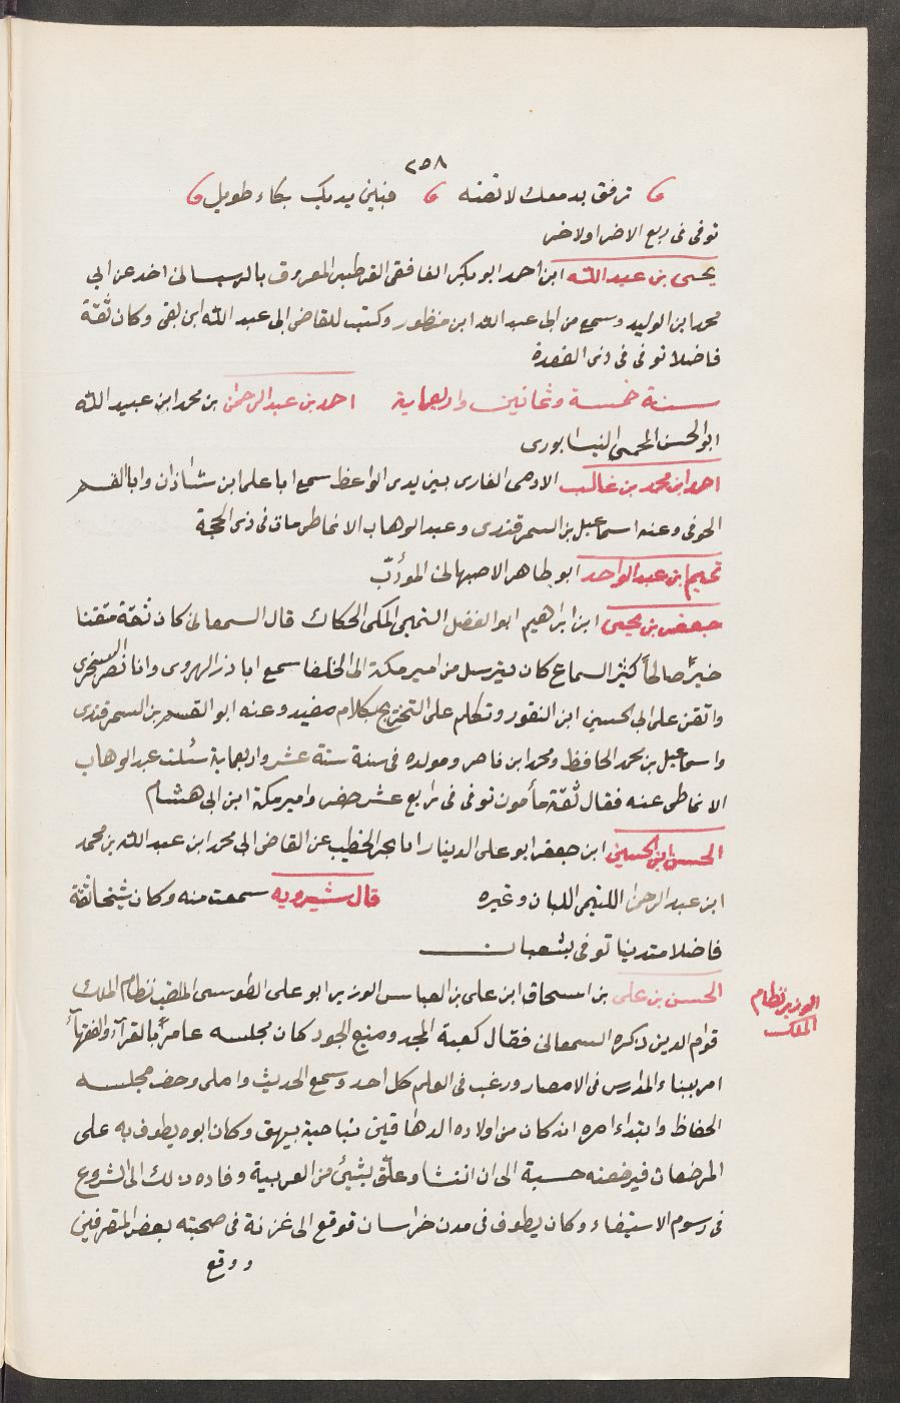 ٢٥٨
ترفق بدمعك لا تفنه فبين يديك بكاء طويل
توفى فى ربيع الاخر او لاخر
يحيى بن عبد الله ابن احمد ابو بكر الغافقى القرطبى المعروف بالرسانى اخذ عن ابى
محمد ابن الوليد وسمع من ابى عبد الله ابن منظور وكتب للقاضى ابى عبد الله ابن بقى وكان ثقة
فاضلا توفى فى ذى القعدة
سنة خمسة وثمانين واربعماية احمد بن عبد الرحمن بن محمد ابن عبيد الله
ابو الحسن المحمى النيسابورى
احمد ابن محمد بن غالب الادمى القارى بين يدى الواعظ سمع ابا على ابن شاذان وابا القسم
الحرفى وعنه اسماعيل بن السمرقندى وعبد الوهاب الانماطى مات فى ذى الحجة
تميم ابن عبد الواحد ابو طاهر الاصبهانى المؤدّب
جعفر بن يحيى ابن ابراهيم ابو الفضل التميمى المكى الحكاك قال السمعانى كان ثقة متقنا
خيرًا صالحاً كثير السماع كان يترسل من امير مكة الى الخلفا سمع ابا ذر الهروى وابا نصر السجزى
واتقن على ابى الحسين ابن النقور وتكلم على التخريج بكلام مفيد وعنه ابو القسم بن السمرقندى
واسماعيل بن محمد الحافظ ومحمد ابن ناصر ومولده فى سنة ستة عشر واربعماية سئلت عبد الوهاب
الانماطى عنه فقال ثقة مأمون توفى فى رابع عشر صفر وامير مكة ابن ابى هشام
الحسن ابن الحسين ابن جعفر ابو على الدينار ابا بحر الخطيب عن القاضى ابى محمد ابن عبد الله بن محمد
ابن عبد الرحمن التيمى اللبان وغيره قال شيرويه سمعت منه وكان شيخا ثقة
فاضلا متدينا توفى بشعبان
الحسن بن على بن اسحاق ابن على بن العباس الوزير ابو على الطوسى الملقب نظام الملك
الوزير نظام الملك
قوام الدين ذكره السمعانى فقال كعبة المجد ومنبع الجود كان مجلسه عامرًا بالقرآء والفقهآء
امر ببناء المدارس فى الامصار ورغب فى العلم كل احد وسمع الحديث واملى وحضر مجلسه
الحفاظ وابتداء امره انه كان من اولاده الدهاقين بناحية بيهق وكان ابوه يطوف به على
المرضعات فيرضعنه حسبة الى ان انتشا وعلّق بشيئ من العربية وقاده ذلك الى الشروع
فى رسوم الاستيفاء وكان يطوف فى مدن خراسان فوقع الى غزنة فى صحبته بعض المتصرفين
ووقع